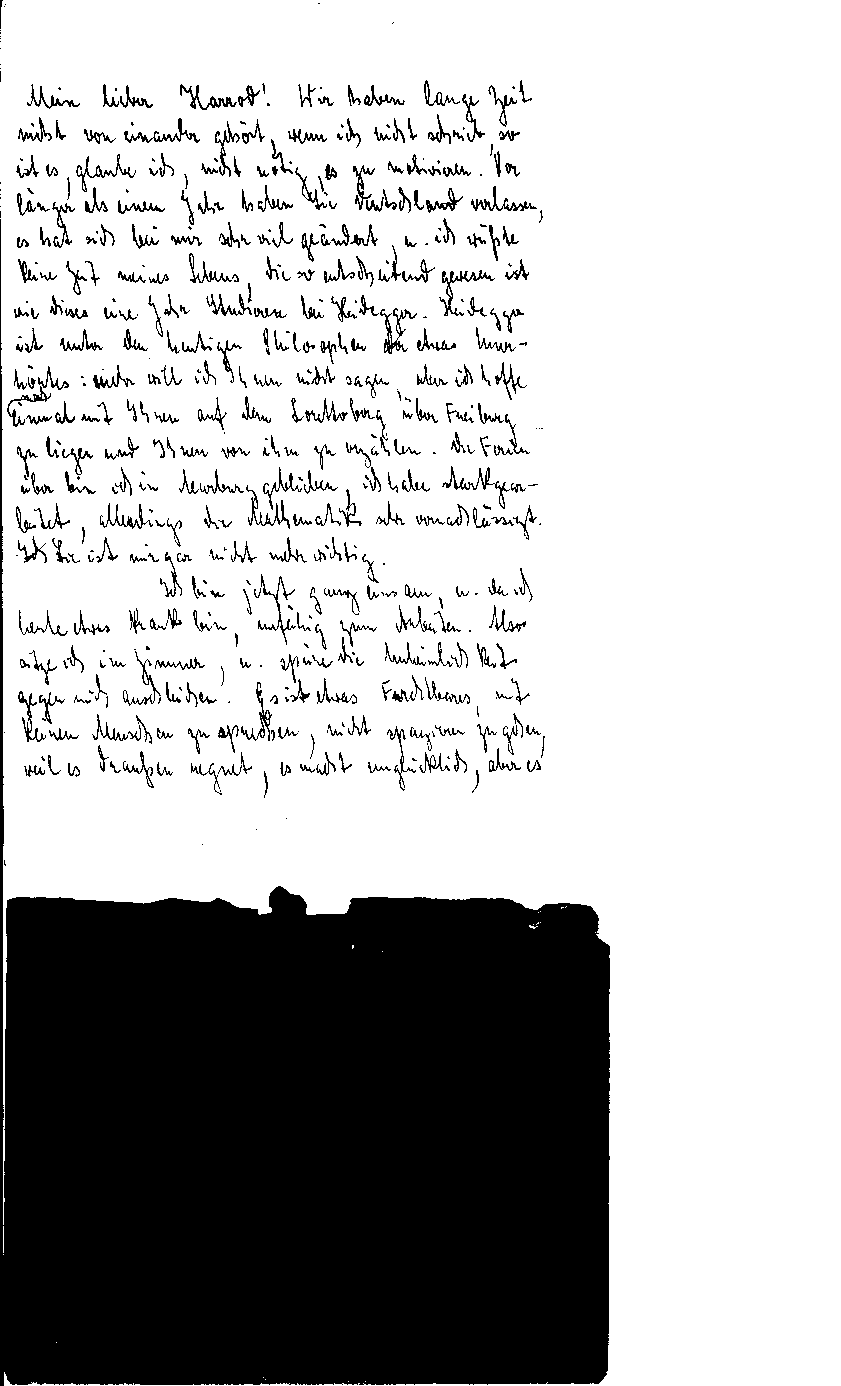 Mein lieber Harrod! Wir haben lange Zeit
nichts von einander gehört, wenn ich nicht schrieb, so
ist es, glaube ich, nicht nötig, es zu motivieren. Vor
länger als einem Jahr haben Sie Deutschland verlassen,
es hat sich bei mir sehr viel geändert, u. ich wüßte
keine Zeit meines Lebens, die so entscheidend gewesen ist
wie dieses eine Jahr Studieren bei Heidegger. Heidegger
ist unter den heutigen Philosophen etwas Uner-
hörtes: mehr will ich Ihnen nicht sagen, aber ich hoffe
noch
einmal mit Ihnen auf dem Lorettoberg über Freiburg
zu liegen und Ihnen von ihm zu erzählen. Die Ferien
über bin ich in Marburg geblieben, ich habe stark gear-
beitet, allerdings die Mathematik sehr vernachlässigt.
ist mir gar nicht mehr wichtig.
Ich bin jetzt ganz einsam, u. da ich
heute etwas krank bin, unfähig zum Arbeiten. Also
sitze ich im Zimmer, u. spüre die Unheimlichkeit
gegen mich anschleichen. Es ist etwas Furchtbares, mit
keinen Menschen zu sprechen, nicht spazieren zu gehen,
weil es draußen regnet, es macht unglücklich, aber es